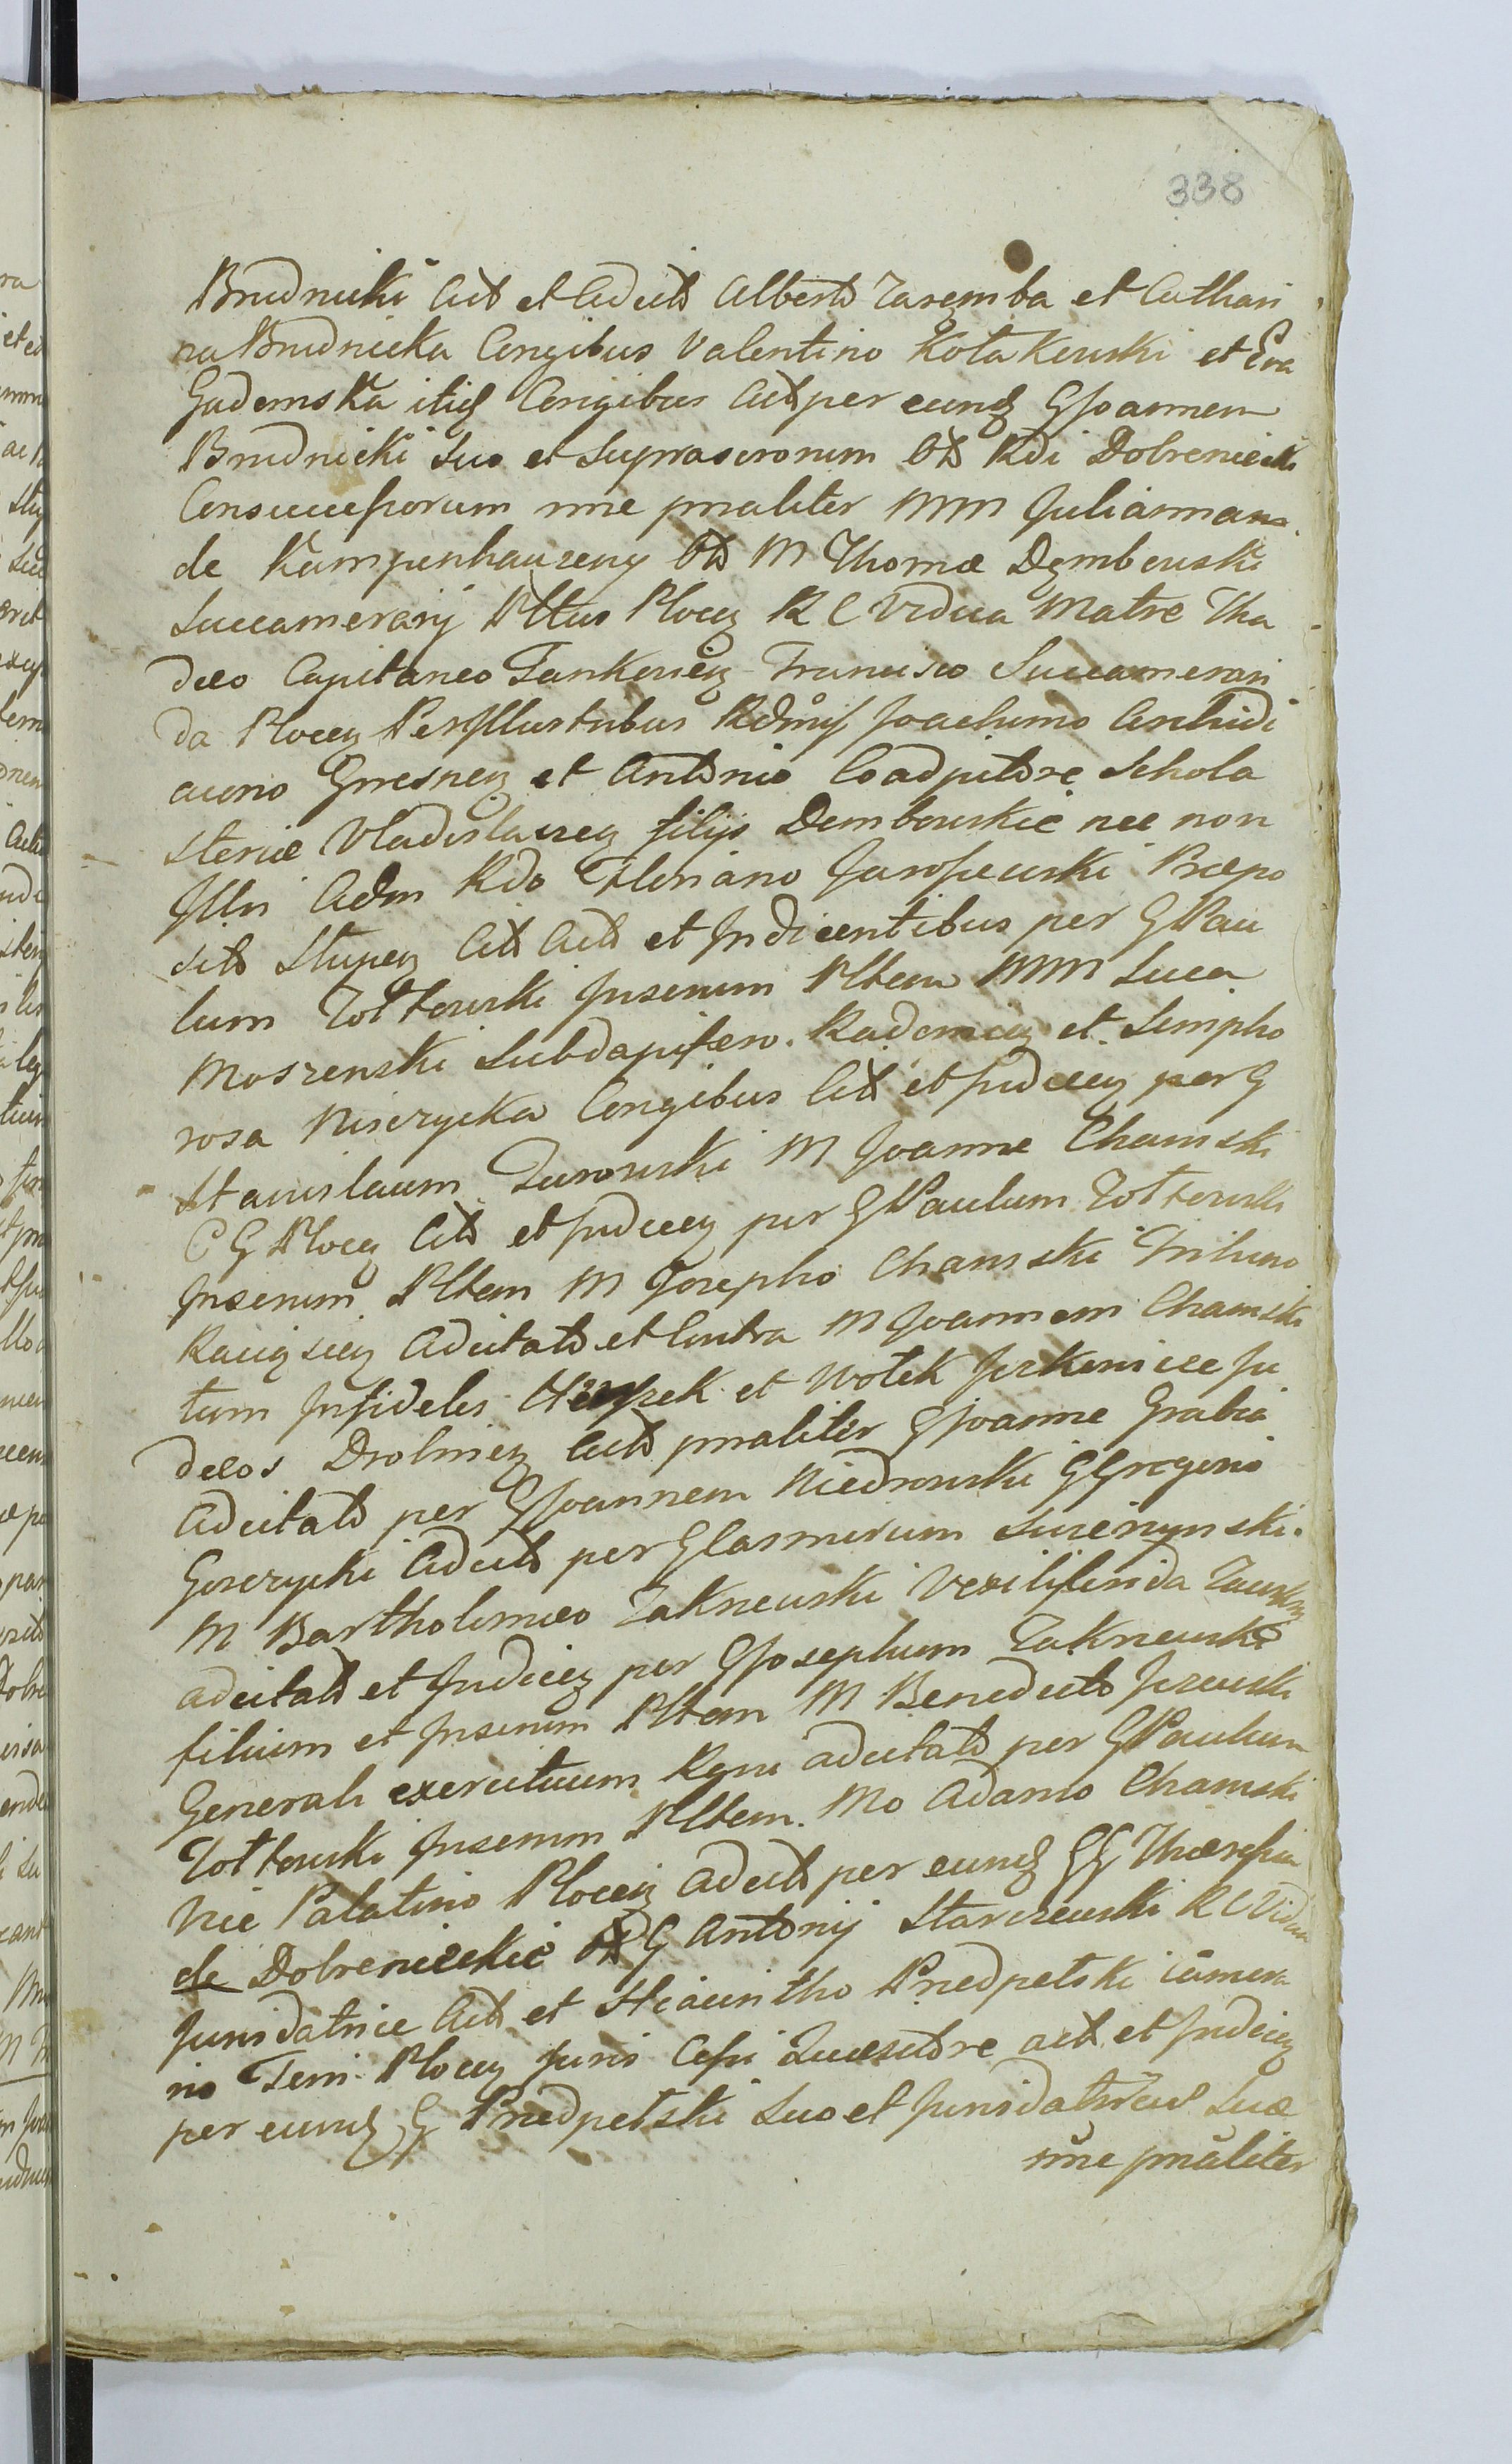 338
Brudnicki Citt et Adcitt Alberto Zaremba et Cathari
na Brudnicka Congibus Valentino Kołakowski et Eva
Gadomska itidq Congibus Citt per eundq G Joannem
Brudnicki Suo et Suprascronum Ott Rdi Dobrenieck
Consuccessorum nne pnaliter MM Juliannam
de Kampenhauzeny Ott M Thomæ Dębowski
Succamerarij Plttus Plocq R C Vidua Matre Tha
deo Capitaneo Francisco Succamerari
da Plocq PerIllustribus Rdmis Joachimo Archidi
acono Gnesneq et Antonio Coadjutore Schola
steriæ Vladislavieq filijs Dembowskie nec non
Illri Adm Rdo Floriano Præpo
sito Stupeq Citt Citt et Indicentibus per G Pau
lum Zołtowski Jnserum Pltem MM Luca
Moszenski Subdapifero Radomieq et Sempho
rosa Niszczycka Congibus Citt et Judceq per G
Stanislaum Zurowski M Joanne Chamski
C G Plocq Citt et Judceq per G Paulum Zołtowski
Jnserum Pltem M Josepho Chamski Tribuno
Raciąsieq Adcitato et Contra M Joannem Chamski
tum Jnfideles et Wołek Ju
dæos Drobnieq Citt pnaliter G Joanne Grabia
Adcitato per G Joannem Niedrowski G Gregorio
Gorczycki Adcitt per G Casmirum
M Bartholomeo Zakrzewski Vexiliferida
adcitato et Judiceq per G Josephum Zakrzewski
filium et Jnserum Pltem M Benedicto Jezewski
Generali exercituum Regni adcitato per G Paulum
Zołtowski Jnserum Pltem. Mo Adamo Chamski
Vice Palatino Plocq adcitt per eundq GG
de Dobrenieckie Ott G Antonij Starczewski R C Vidua
Juridatrice Citt et Hiacintho Przedpełski
rio Terri Plocq Juris Cessi Quæsitore citt et Judiceq
per eundq G Przedpełski Suo et Juridatricis Suæ
nne pnaliter